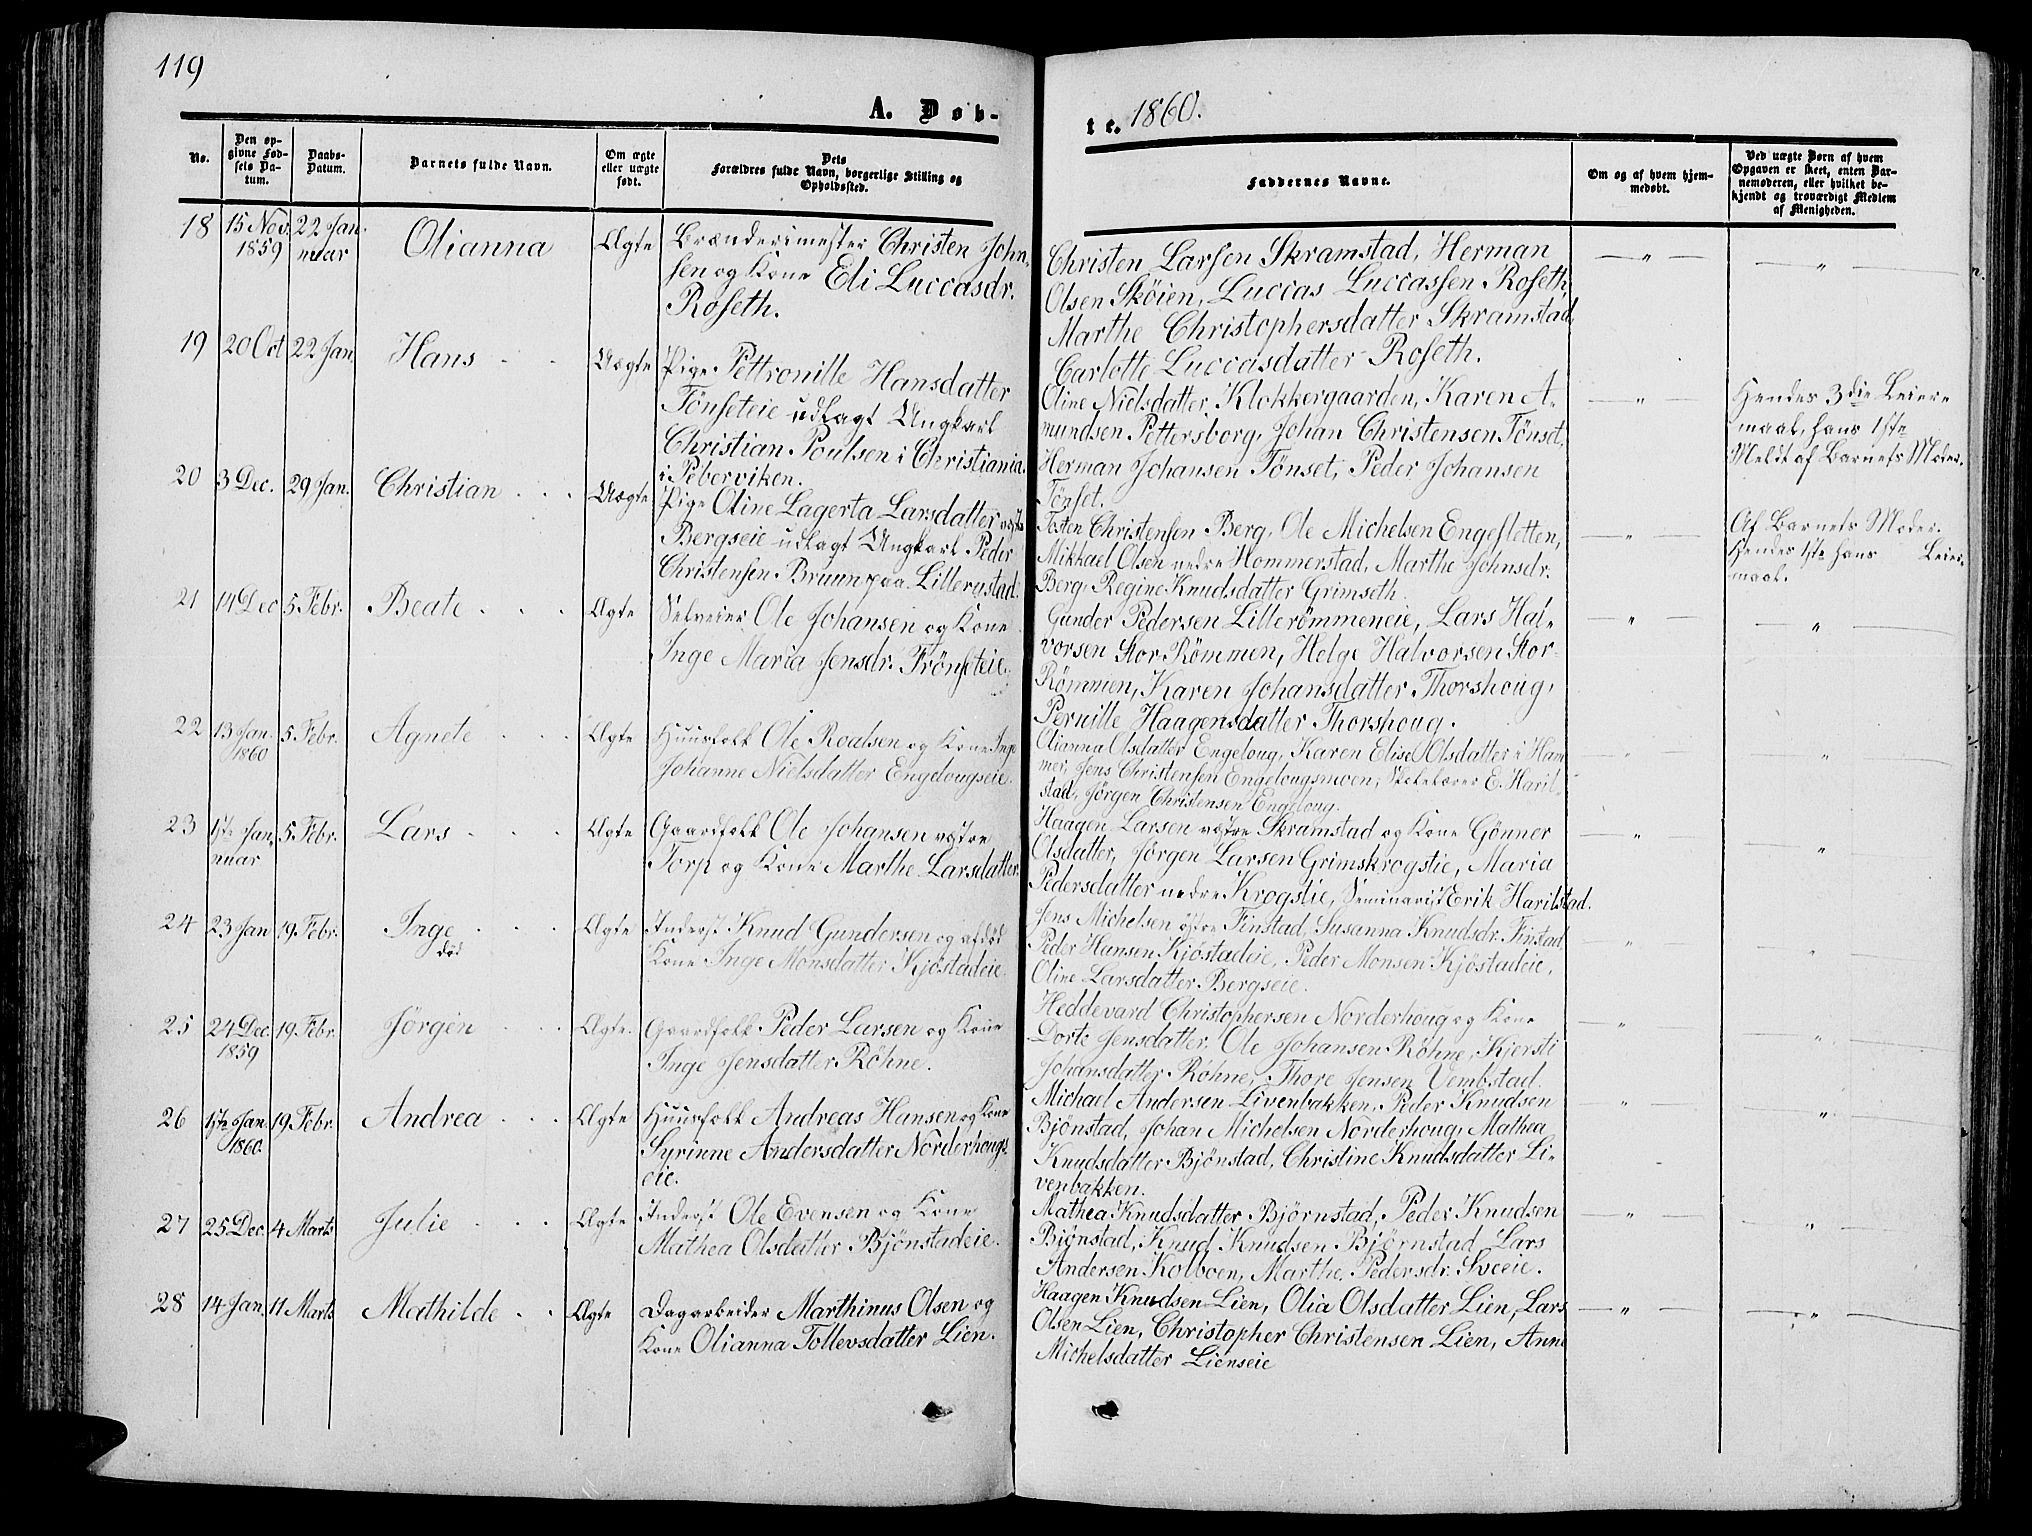 119
A. Døb-
te. 1860.
No.
Den op-
givne Fød-
sels Da-
tum.
Daabs-
Datum.
Barnets fulde Navn.
Om ægte
eller uægte
født.
Dets
Forældres fulde Navn, borgerlige Stilling og
Opholdssted.
Faddernes Navne.
Om og af hvem hjem-
medøbt.
Ved uægte Børn af hvem
Opgaven er skeet, enten Bar-
nemoderen, eller hvilket be-
kjendt og troværdigt Medlem
af Menigheden.
18 15 Nov. 22 Jan- Olianna Ægte Brænderimester Christen John-
1859 nuar
sen og Kone Eli Luccasdr.
Roseth.
Christen Larsen Skramstad, Herman
Olsen Skøien, Luccas Luccassen Roseth,
Marthe Christophersdatter Skramstad,
Carlotte Luccasdatter Roseth.
19 20 Oct 22 Jan. Hans Uægte Pige Pettronille Hansdatter
Tønseteie udlagt Ungkarl
Christian Poulsen i Christiania
i Peberviken.
Oline Nielsdatter Klokkergaarden, Karen A-
mundsen Pettersborg, Johan Christensen Tønset,
Herman Johansen Tønset, Peder Johansen
Tønset.
Hendes 3die Leier-
maal, hans 1ste
Meldt af Barnets Moder.
20 3 Dec. 29 Jan. Christian Uægte Pige Oline Lagerta Larsdatter
Bergseie udlagt Ungkarl Peder
Christensen Bruun paa Lillerustad.
Tosten Christensen Berg, Ole Michelsen Engesletten,
Mikkael Olsen nedre Hommerstad, Marthe Johnsdr.
Berg, Regine Knudsdatter Grimseth.
Af Barnets Moder.
Hendes 1ste hans Leier-
maal.
21 14 Dec 5 Febr. Beate Ægte Selveier Ole Johansen og Kone
Inge Maria Jensdr. Frönseteie.
Gunder Pedersen Lillerømmeneie, Lars Hal-
vorsen Stor Rømmen, Helge Halvorsen Stor-
Rømmen, Karen Johansdatter Thorshoug,
Pernille Haagensdatter Thorshoug.
22 13 Jan. 5 Febr. Agnete Ægte Huusfolk Ole Roalsen og Kone Inge
1860
Johanne Nielsdatter Engelougseie.
Olianna Olsdatter Engeloug, Karen Elise Olsdatter i Ham
mer, Jens Christensen Engelougsmoen, Skolelærer E. Haril-
stad, Jørgen Christensen Engeloug.
23 1ste Jan- 5 Febr. Lars Ægte Gaardfolk Ole Johansen vestre
nuar
Torp og Kone Marthe Larsdatter.
Haagen Larsen vestre Skramstad og Kone Gønner
Olsdatter, Jørgen Larsen Grimskrogstie, Maria
Pedersdatter nedre Krogstie, Seminarist Erik Harilstad.
24 23 Jan 19 Febr. Inge Ægte Inderst Knud Gundersen og afdød
død
Kone Inge Monsdatter Kjøstadeie.
Jens Michelsen østre Finstad, Susanna Knudsdr. Finstad
Peder Hansen Kjöstadeie, Peder Monsen Kjöstadeie,
Oline Larsdatter Bergseie.
25 24 Dec. 19 Febr. Jørgen Ægte Gaardfolk Peder Larsen og Kone
1859
Inge Jensdatter Röhne.
Heddevard Christophersen Norderhoug og Kone
Dorte Jensdatter. Ole Johansen Röhne, Kjersti
Johansdatter Röhne, Thore Jensen Vembstad.
26 1ste Jan. 19 Febr. Andrea Ægte Huusfolk Andreas Hansen og Kone
1860.
Syrinne Andersdatter Norderhougs-
eie.
Michael Andersen Livenbakken, Peder Knudsen
Bjönstad, Johan Michelsen Norderhoug, Mathea
Knudsdatter Bjönstad, Christine Knudsdatter Li-
venbakken.
27 25 Dec. 4 Marts Julie Ægte Inderst Ole Evensen og Kone
Mathea Olsdatter Bjönstadeie.
Mathea Knudsdatter Björnstad, Peder Knudsen
Björnstad, Knud Knudsen Björnstad, Lars
Andersen Kolboen, Marthe Pedersdr. Sveeie.
28 14 Jan. 11 Marts Mathilde Ægte Dagarbeider Marthinus Olsen og
Kone Olianna Tollevsdatter Lien.
Haagen Knudsen Lien, Olia Olsdatter Lien, Lars
Olsen Lien, Christopher Christensen Lien, Anne
Michelsdatter Lienseie